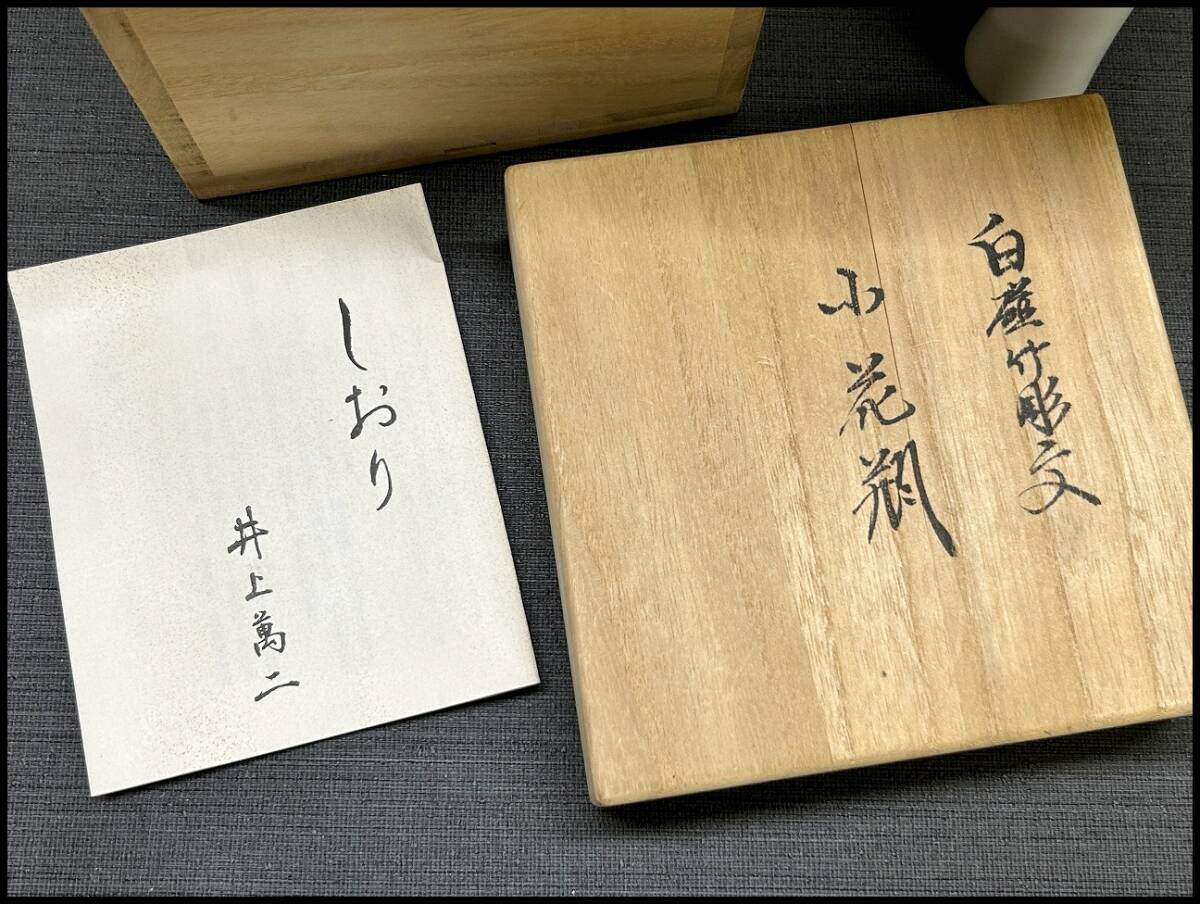 しおり
井上萬二
白磁竹彫文
小花瓶